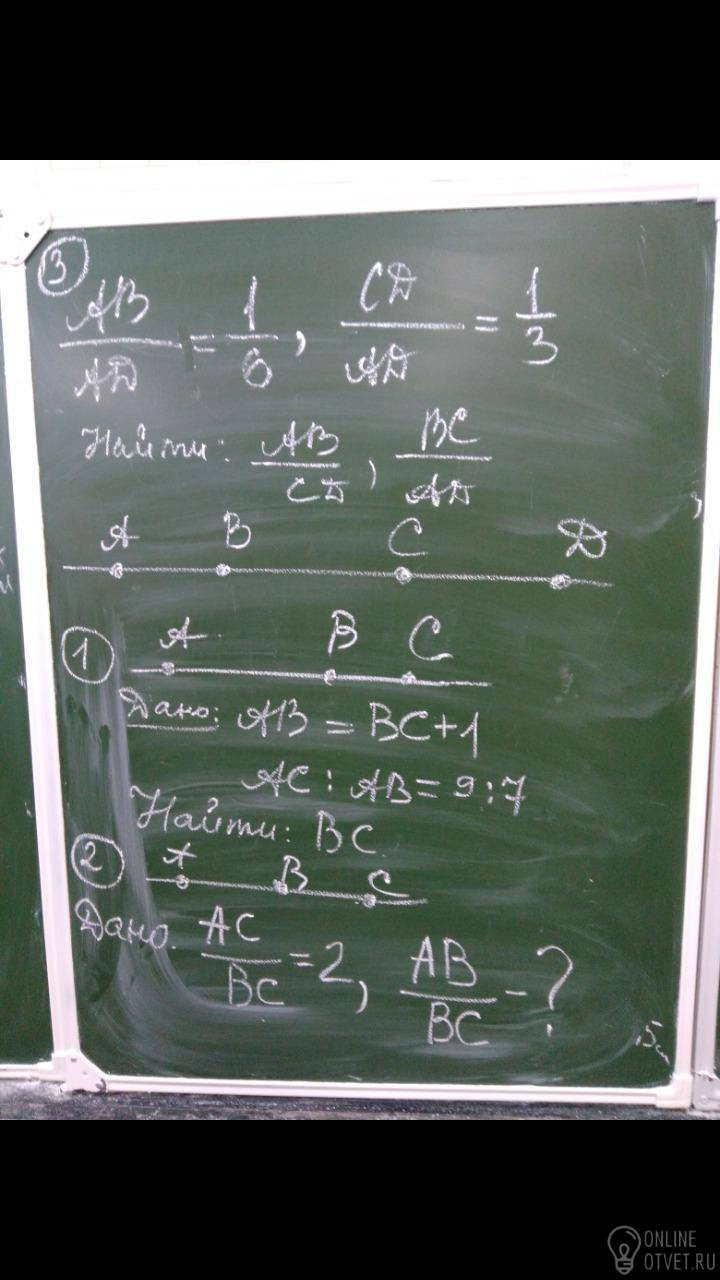 ③
AB/AD = 1/6, CD/AD = 1/3
Найти: AB/CD, BC/AD
A B C D
① A B C
Дано: AB = BC+1
AC : AB = 9 : 7
Найти: BC
② A B C
Дано. AC/BC = 2, AB/BC - ?
ONLINE
OTVET.RU